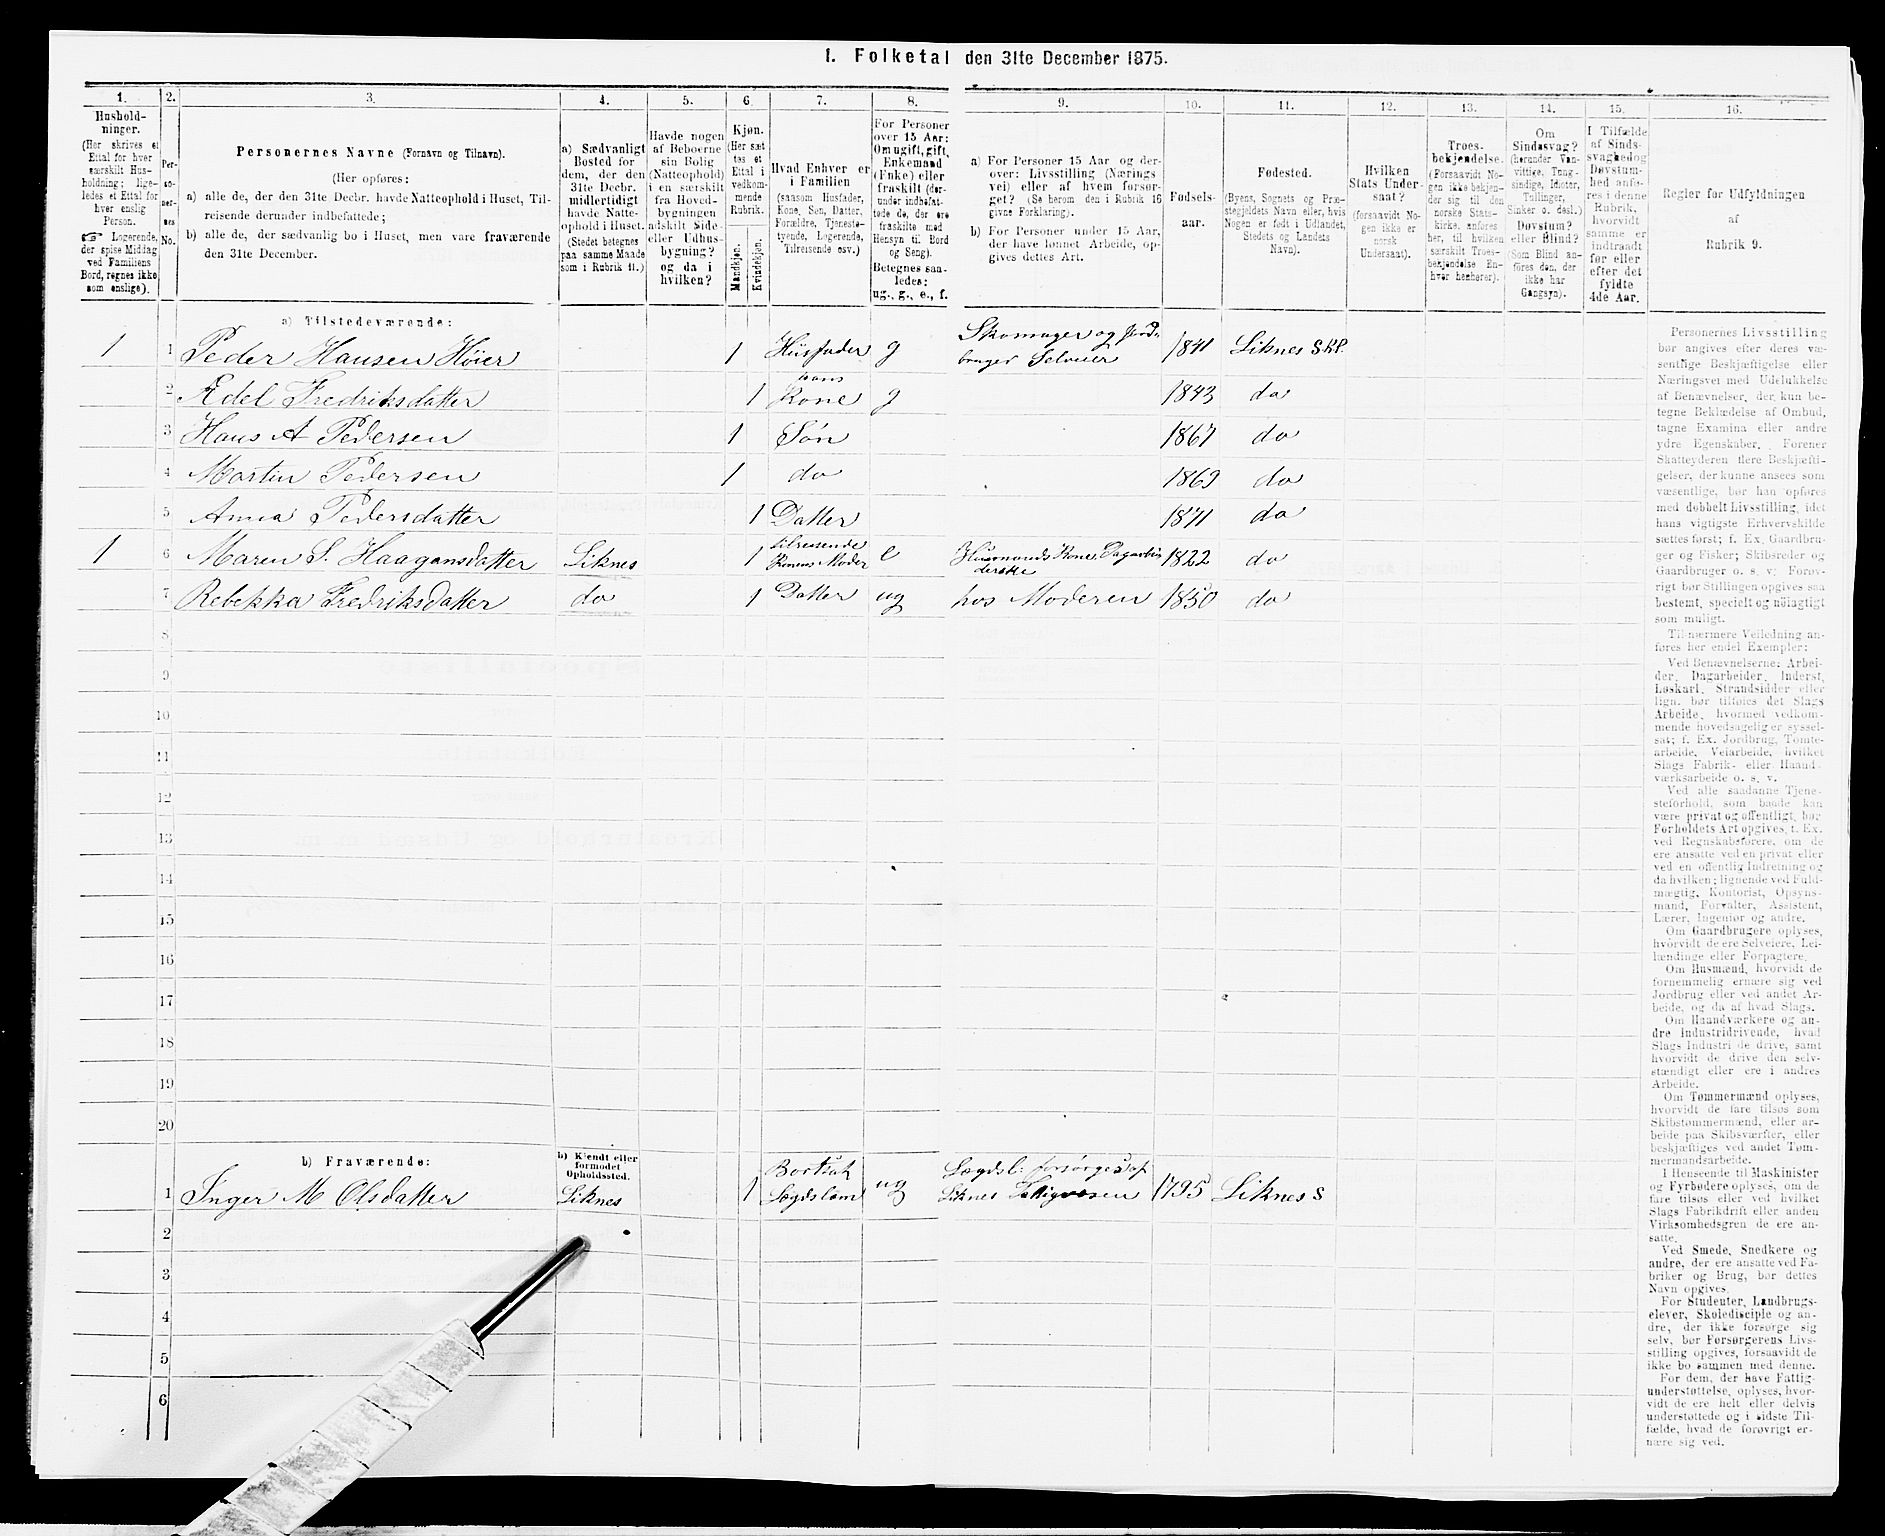 1. Folketal den 31te December 1875.
1. 2. 3. 4. 5. 6. 7. 8. 9. 10. 11. 12. 13. 14. 15. 16.
Hushold-
ninger.
(Her skrives et
Ettal for hver
særskilt Hus-
holdning; lige-
ledes et Ettal for
hver enslig
Person.
☞ Logerende,
der spise Middag
ved Familiens
Bord, regnes ikke
som enslige).
Per-
so-
ner-
nes
No.
Personernes Navne (Fornavn og Tilnavn).
(Her opføres:
a) alle de, der den 31te Decbr. havde Natteophold i Huset, Til-
reisende derunder indbefattede;
b) alle de, der sædvanlig bo i Huset, men vare fraværende
den 31te December.
a) Sædvanligt
Bosted for
dem, der den
31te Decbr.
midlertidigt
havde Natte-
ophold i Huset.
(Stedet betegnes
paa samme Maade
som i Rubrik 11.)
Havde nogen
af Beboerne
sin Bolig
(Natteophold)
i en særskilt
fra Hoved-
bygningen
adskilt Side-
eller Udhus-
bygning?
og da i
hvilken?
Kjøn.
(Her sæt-
tes et
Ettal i
vedkom-
mende
Rubrik.
Mandkjøn.
Kvindekjøn.
Hvad Enhver er
i Familien
(saasom Husfader,
Kone, Søn, Datter,
Forældre, Tjeneste-
tyende, Logerende,
Tilreisende osv.)
For Personer
over 15 Aar:
Om ugift, gift,
Enkemand
(Enke) eller
fraskilt (der-
under indbefat-
tede de, der ere
fraskilte med
Hensyn til Bord
og Seng).
Betegnes saa-
ledes:
ug., g., e., f.
a) For Personer 15 Aar og der-
over: Livsstilling (Nærings-
vei) eller af hvem forsør-
get? (Se herom den i Rubrik 16
givne Forklaring).
b) For Personer under 15 Aar,
der have lønnet Arbeide, op-
gives dettes Art.
Fødsels-
aar.
Fødested.
(Byens, Sognets og Præ-
stegjeldets Navn eller, hvis
Nogen er født i Udlandet,
Stedets og Landets
Navn).
Hvilken
Stats Under-
saat?
(forsaavidt No-
gen ikke er
norsk
Undersaat).
Troes-
bekjendelse.
(Forsaavidt No-
gen ikke bekjen-
der sig til den
norske Stats-
kirke, anføres
her, til hvilken
særskilt Troes-
bekjendelse En-
hver henhører).
Om
Sindssvag?
(herunder Van-
vittige, Tung-
sindige, Idioter,
Tullinger,
Sinker o. desl.)
Døvstum?
eller Blind?
(Som Blind an-
føres den, der
ikke har
Gangsyn).
I Tilfælde
af Sinds-
svaghed og
Døvstum-
hed anfø-
res i denne
Rubrik,
hvorvidt
samme er
indtraadt
før eller
efter det
fyldte
4de Aar.
Regler for Udfyldningen
af
Rubrik 9.
a) Tilstedeværende:
1 1 Peder Hansen Høier 1 Husfader g Skomager og Jord-
bruger Selveier 1841 Liknes SKP.
2 Ædel Fredriksdatter 1 hans
Kone g 1843 do
3 Hans A Pedersen 1 Søn 1867 do
4 Martin Pedersen 1 do 1869 do
5 Anna Pedersdatter 1 Datter 1871 do
1 6 Maren S. Haagansdatter Liknes 1 tilreisende
Konens Moder e Husmands Kone Dagarbei
derske 1822 do
7 Rebekka Fredriksdatter do 1 Datter ug hos Moderen 1850 do
8
9
10
11
12
13
14
15
16
17
18
19
20
b) Fraværende:
b) Kjendt eller
formodet
Opholdssted.
1 Inger M Olsdatter Liknes 1 Bortsat
Lægdslam ug Lægdsl: forsørges af
Liknes Fattigvæsen 1795 Liknes S
2
3
4
5
6
Personernes Livsstilling
bør angives efter deres væ-
sentlige Beskjæftigelse eller
Næringsvei med Udelukkelse
af Benævnelser, der kun be-
tegne Beklædelse af Ombud,
tagne Examina eller andre
ydre Egenskaber. Forener
Skatteyderen flere Beskjæfti-
gelser, der kunne ansees som
væsentlige, bør han opføres
med dobbelt Livsstilling, idet
hans vigtigste Erhvervskilde
sættes først; f. Ex. Gaardbru-
ger og Fisker; Skibsreder og
Gaardbruger o. s. v. Forøv-
rigt bør Stillingen opgives saa
bestemt, specielt og nøiagtigt
som muligt.
Til nærmere Veiledning an-
føres her endel Exempler:
Ved Benævnelserne: Arbei-
der, Dagarbeider, Inderst,
Løskarl, Strandsidder eller
lign. bør tilføies det Slags
Arbeide, hvormed vedkom-
mende hovedsagelig er syssel-
sat; f. Ex. Jordbrug, Tomte-
arbeide, Veiarbeide, hvilket
Slags Fabrik- eller Haand-
værksarbeide o. s. v.
Ved alle saadanne Tjene-
steforhold, som baade kan
være privat og offentligt, bør
Forholdets Art opgives, f. Ex.
ved Regnskabsførere, om de
ere ansatte ved en privat eller
ved en offentlig Indretning og
da hvilken; lignende ved Fuld-
mægtig, Kontorist, Opsyns-
mand, Forvalter, Assistent,
Lærer, Ingeniør og andre.
Om Gaardbrugere oplyses,
hvorvidt de ere Selveiere, Lei-
lændinge eller Forpagtere.
Om Husmænd, hvorvidt de
fornemmelig ernære sig ved
Jordbrug eller ved andet Ar-
beide, og da af hvad Slags.
Om Haandværkere og an-
dre Industridrivende, hvad
Slags Industri de drive, samt
hvorvidt de drive den selv-
stændigt eller ere i andres
Arbeide.
Om Tømmermænd oplyses,
hvorvidt de fare tilsøs som
Skibstømmermænd, eller ar-
beide paa Skibsværfter, eller
beskjæftiges ved andet Tøm-
mermandsarbeide.
I Henseende til Maskinister
og Fyrbødere oplyses, om de
fare tilsøs eller ved hvilket
Slags Fabrikdrift eller anden
Virksomhedsgren de ere an-
satte.
Ved Smede, Snedkere og
andre, der ere ansatte ved Fa-
briker og Brug, bør dettes
Navn opgives.
For Studenter, Landbrugs-
elever, Skoledisciple og an-
dre, der ikke forsørge sig
selv, bør Forsørgerens Livs-
stilling opgives, forsaavidt de
ikke bo sammen med denne.
For dem, der have Fattig-
understøttelse, oplyses, hvor-
vidt de ere helt eller delvis
understøttede og i sidste Til-
fælde, hvad de forøvrigt er-
nære sig ved.